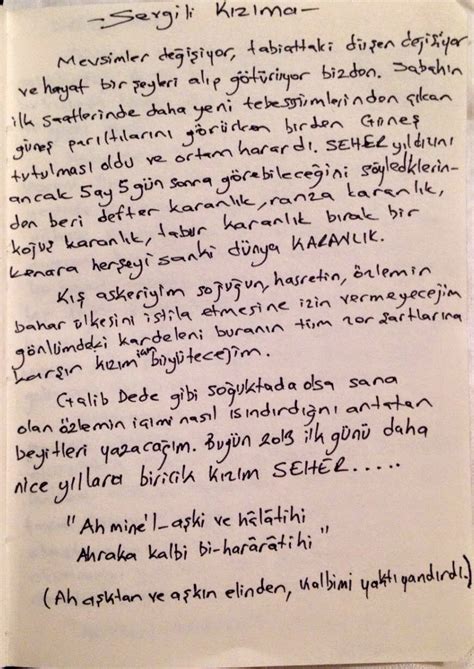 - Sevgili Kızıma -
Mevsimler değişiyor, tabiattaki düzen değişiyor
ve hayat bir şeyleri alıp götürüyor bizden. Sabahın
ilk saatlerinde daha yeni tebessümlerinden çıkan
güneş parıltılarını görürken birden Güneş
tutulması oldu ve ortam karardı. SEHER yıldızını
ancak 5 ay 5 gün sonra görebileceğini söylediklerin-
den beri defter karanlık, ranza karanlık,
koğuş karanlık, tabur karanlık bırak bir
kenara herşeyi sanki dünya KARANLIK.
Kış askeriyim soğuğun, hasretin, özlemin
bahar ülkesini istila etmesine izin vermeyeceğim
gönlümdeki kardeleni buranın tüm zor şartlarına
karşın kızım için büyüteceğim.
Galib Dede gibi soğuktada olsa sana
olan özlemin içimi nasıl ısındırdığını anlatan
beyitleri yazacağım. Bugün 2013 ilk günü daha
nice yıllara biricik kızım SEHER.....
"Ah mine'l-aşki ve hâlâtihi
Ahraka kalbi bi-harârâtihi"
(Ah aşktan ve aşkın elinden, kalbimi yaktı yandırdı.)